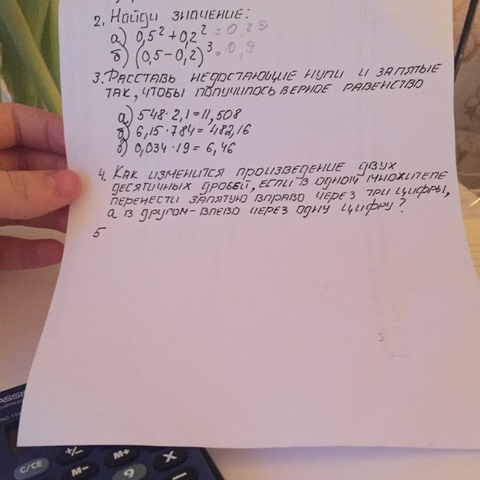 2. Найди значение:
а) 0,5² + 0,2² = 0,29
б) (0,5 - 0,2)³ = 0,9
3. Расставь недостающие нули и запятые
так, чтобы получилось верное равенство
а) 548 · 2,1 = 11,508
б) 6,15 · 784 = 482,16
в) 0,034 · 19 = 6,46
4. Как изменится произведение двух
десятичных дробей, если в одном множителе
перенести запятую вправо через три цифры,
а в другом - влево через одну цифру?
5
C/CE
+/-
M-
M+
9
×
-